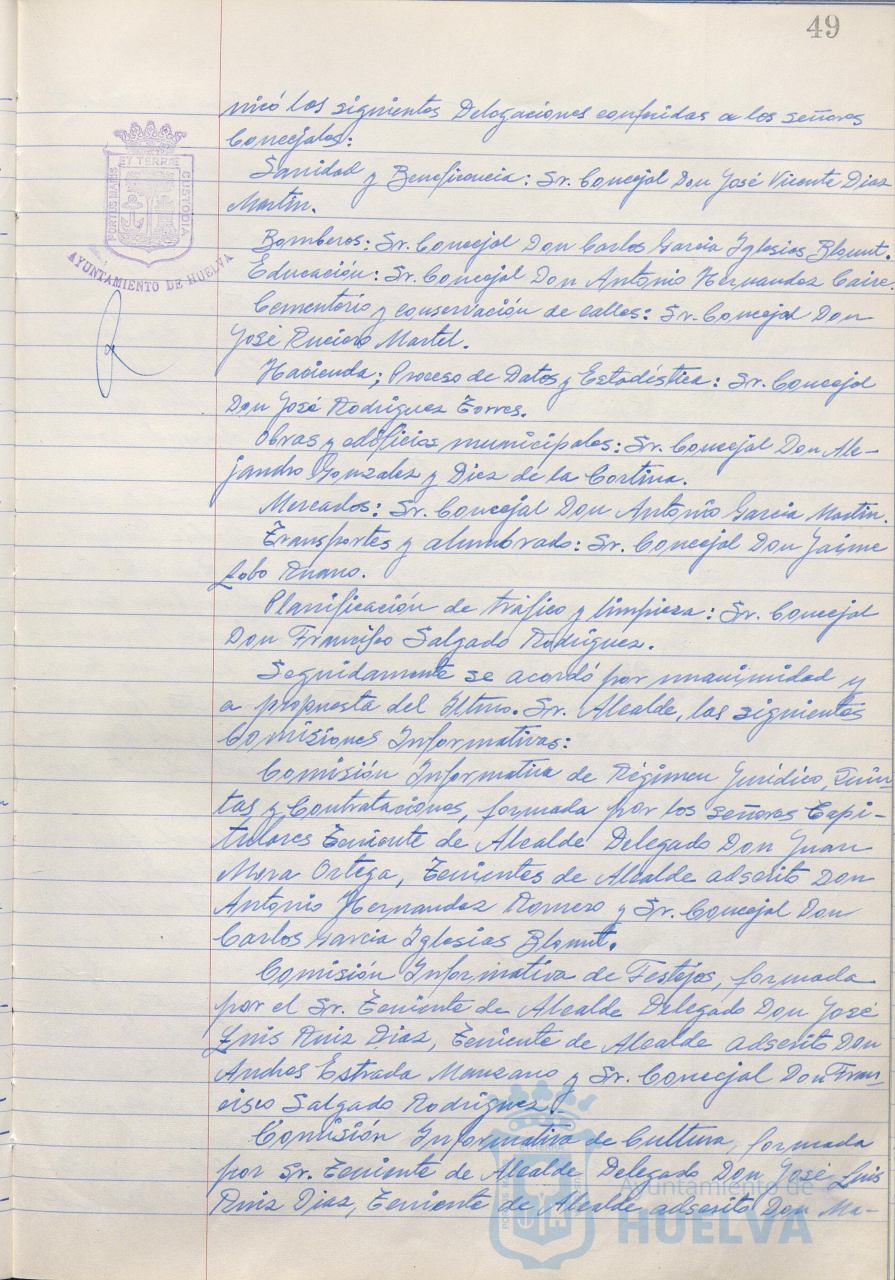 49
nicó las siguientes Delegaciones conferidas a los señores
Concejales:
Sanidad y Beneficencia: Sr. Concejal Don José Vicente Diaz
Martin.
Bomberos: Sr. Concejal Don Carlos Garcia Iglesias Blount.
Educación: Sr. Concejal Don Antonio Hernandez Caire.
Cementerio y conservación de calles: Sr. Concejal Don
José Ruciero Martel.
Hacienda; Proceso de Datos y Estadística: Sr. Concejal
Don José Rodriguez Torres.
Obras y edificios municipales: Sr. Concejal Don Ale-
jandro Gonzalez y Diez de la Cortina.
Mercados: Sr. Concejal Don Antonio Garcia Martin.
Transportes y alumbrado: Sr. Concejal Don Jaime
Lobo Ruano.
Planificación de tráfico y limpieza: Sr. Concejal
Don Francisco Salgado Rodriguez.
Seguidamente se acordó por unanimidad y
a propuesta del Iltmo. Sr. Alcalde, las siguientes
Comisiones Informativas:
Comisión Informativa de Régimen Jurídico, Quin-
tas y Contrataciones, formada por los señores Capi-
tulares Teniente de Alcalde Delegado Don Juan
Mora Ortega, Tenientes de Alcalde adscrito Don
Antonio Hernandez Romero y Sr. Concejal Don
Carlos Garcia Iglesias Blount.
Comisión Informativa de Festejos, formada
por el Sr. Teniente de Alcalde Delegado Don José
Luis Ruiz Diaz, Teniente de Alcalde adscrito Don
Andres Estrada Manzano y Sr. Concejal Don Fran-
cisco Salgado Rodriguez.
Comisión Informativa de Cultura, formada
por Sr. Teniente de Alcalde Delegado Don José Luis
Ruiz Diaz, Teniente de Alcalde adscrito Don Ma-
PORTUS MARIS
ET TERRÆ
CUSTODIA
AYUNTAMIENTO DE HUELVA
Ayuntamiento de
HUELVA